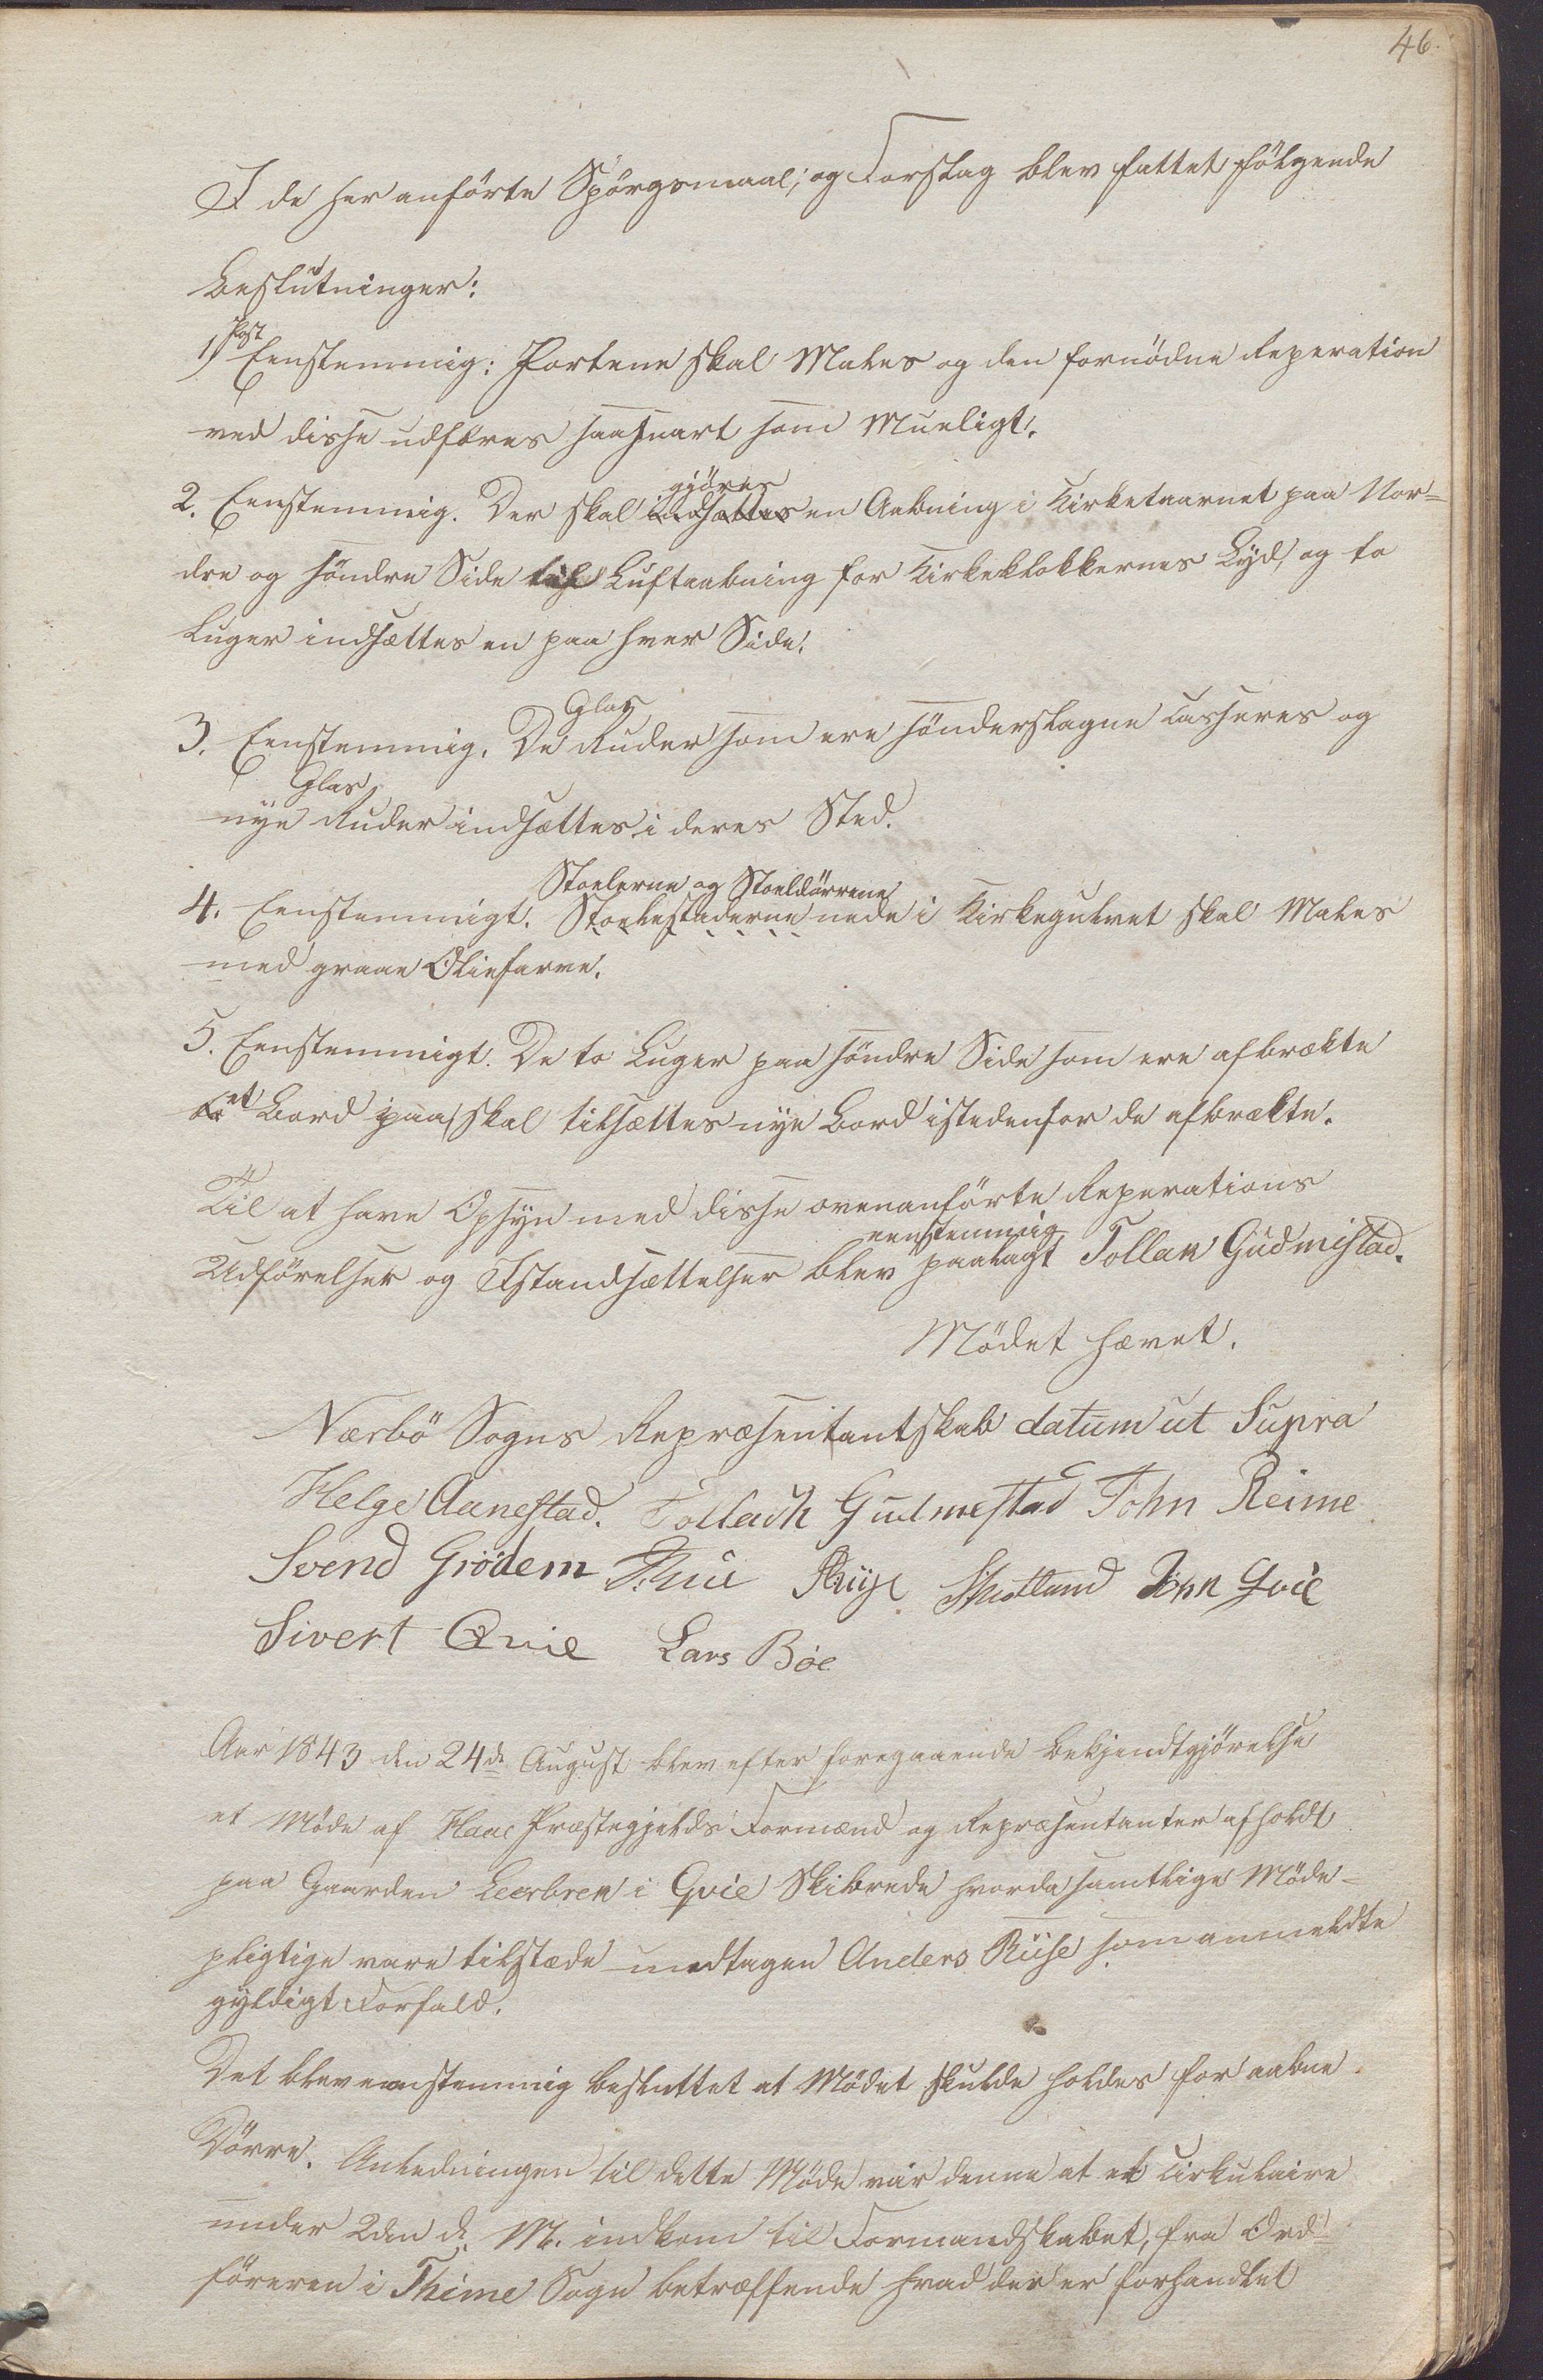 46.
I de her anførte Spörgsmaal; og Forslag blev fattet følgende
Beslutninger:
1) Post Eenstemmig: Portene skal Males og den fornödne Reperation
ved disse udføres saasnart som Mueligt.
2. Eenstemmig. Der skal indsættes gjöres en Aabning i Kirketaarnet paa Nor=
dre og söndre Side til Luftaabning for Kirkeklokkernes Lyd, og to
Luger indsættes en paa hver Side.
3. Eenstemmig. De Glas Ruder som ere sönderslagne casseres og
nye Glas Ruder indsættes i deres Sted.
4. Eenstemmigt. Stoelestaderne Stoelerne og Stoeldörrene nede i Kirkegulvet skal Males
med graae Oliefarve.
5. Eenstemmigt. De to Luger paa söndre Side som ere afbrækte
et Bord paa skal tilsættes nye Bord istedenfor de afbrækte.
Til at have Opsyn med disse ovenanförte Reperations
Udförelser og Istandsættelser blev eenstemmig paalagt Tollak Gudmistad.
Mödet hævet.
Nærbö Sogns Repræsentantskab datum ut Supra
Helge Aanestad. Tollach Gudmestad John Reime
Svend Grödem Thue Skrettland John Qvie
Sivert Qvie Lars Böe
Aar 1843 den 24de August blev efter foregaaende Bekjendtgjörelse
et Möde af Haae Præstegjelds Formænd og Repræsentanter afholdt
paa Gaarden Leerbrek i Qvie Skibrede hvorda samtlige Möde-
pligtige vare tilstæde undtagen Anders Riise som anmeldte
gyldigt Forfald.
Det blev eenstemmig besluttet at Mödet skulde holdes for aabne
Dörre. Anledningen til dette Möde var denne at et Cirkulaire
under 2den d. M. indkom til Formandskabet, fra Ord-
föreren i Thime Sogn betræffende hvad der er forhandlet